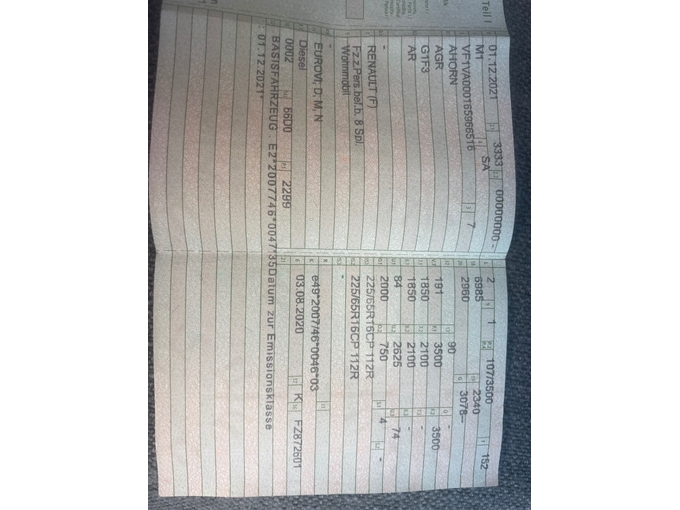 Teil I
01.12.2021 3333 00000000-
M1 SA
VF1VA000165966516 7
AHORN
AGR
G1F3
AR
-
RENAULT (F)
Fz.z.Pers.bef.b. 8 Spl.
Wohnmobil
-
EUROVI; D; M, N
Diesel
0002 6600 2299
BASISFAHRZEUG : EZ*2007746*0047*35Datum zur Emissionsklasse
: 01.12.2021*
2 1 107/3500 152
6985 2340
2960 3078--
90 -
191 3500 3500
1850 2100 -
1850 2100 -
84 2625 74
2000 750 4 -
225/65R16CP 112R
225/65R16CP 112R
-
e49*2007/46*0046*03
03.08.2020 K FZ872601